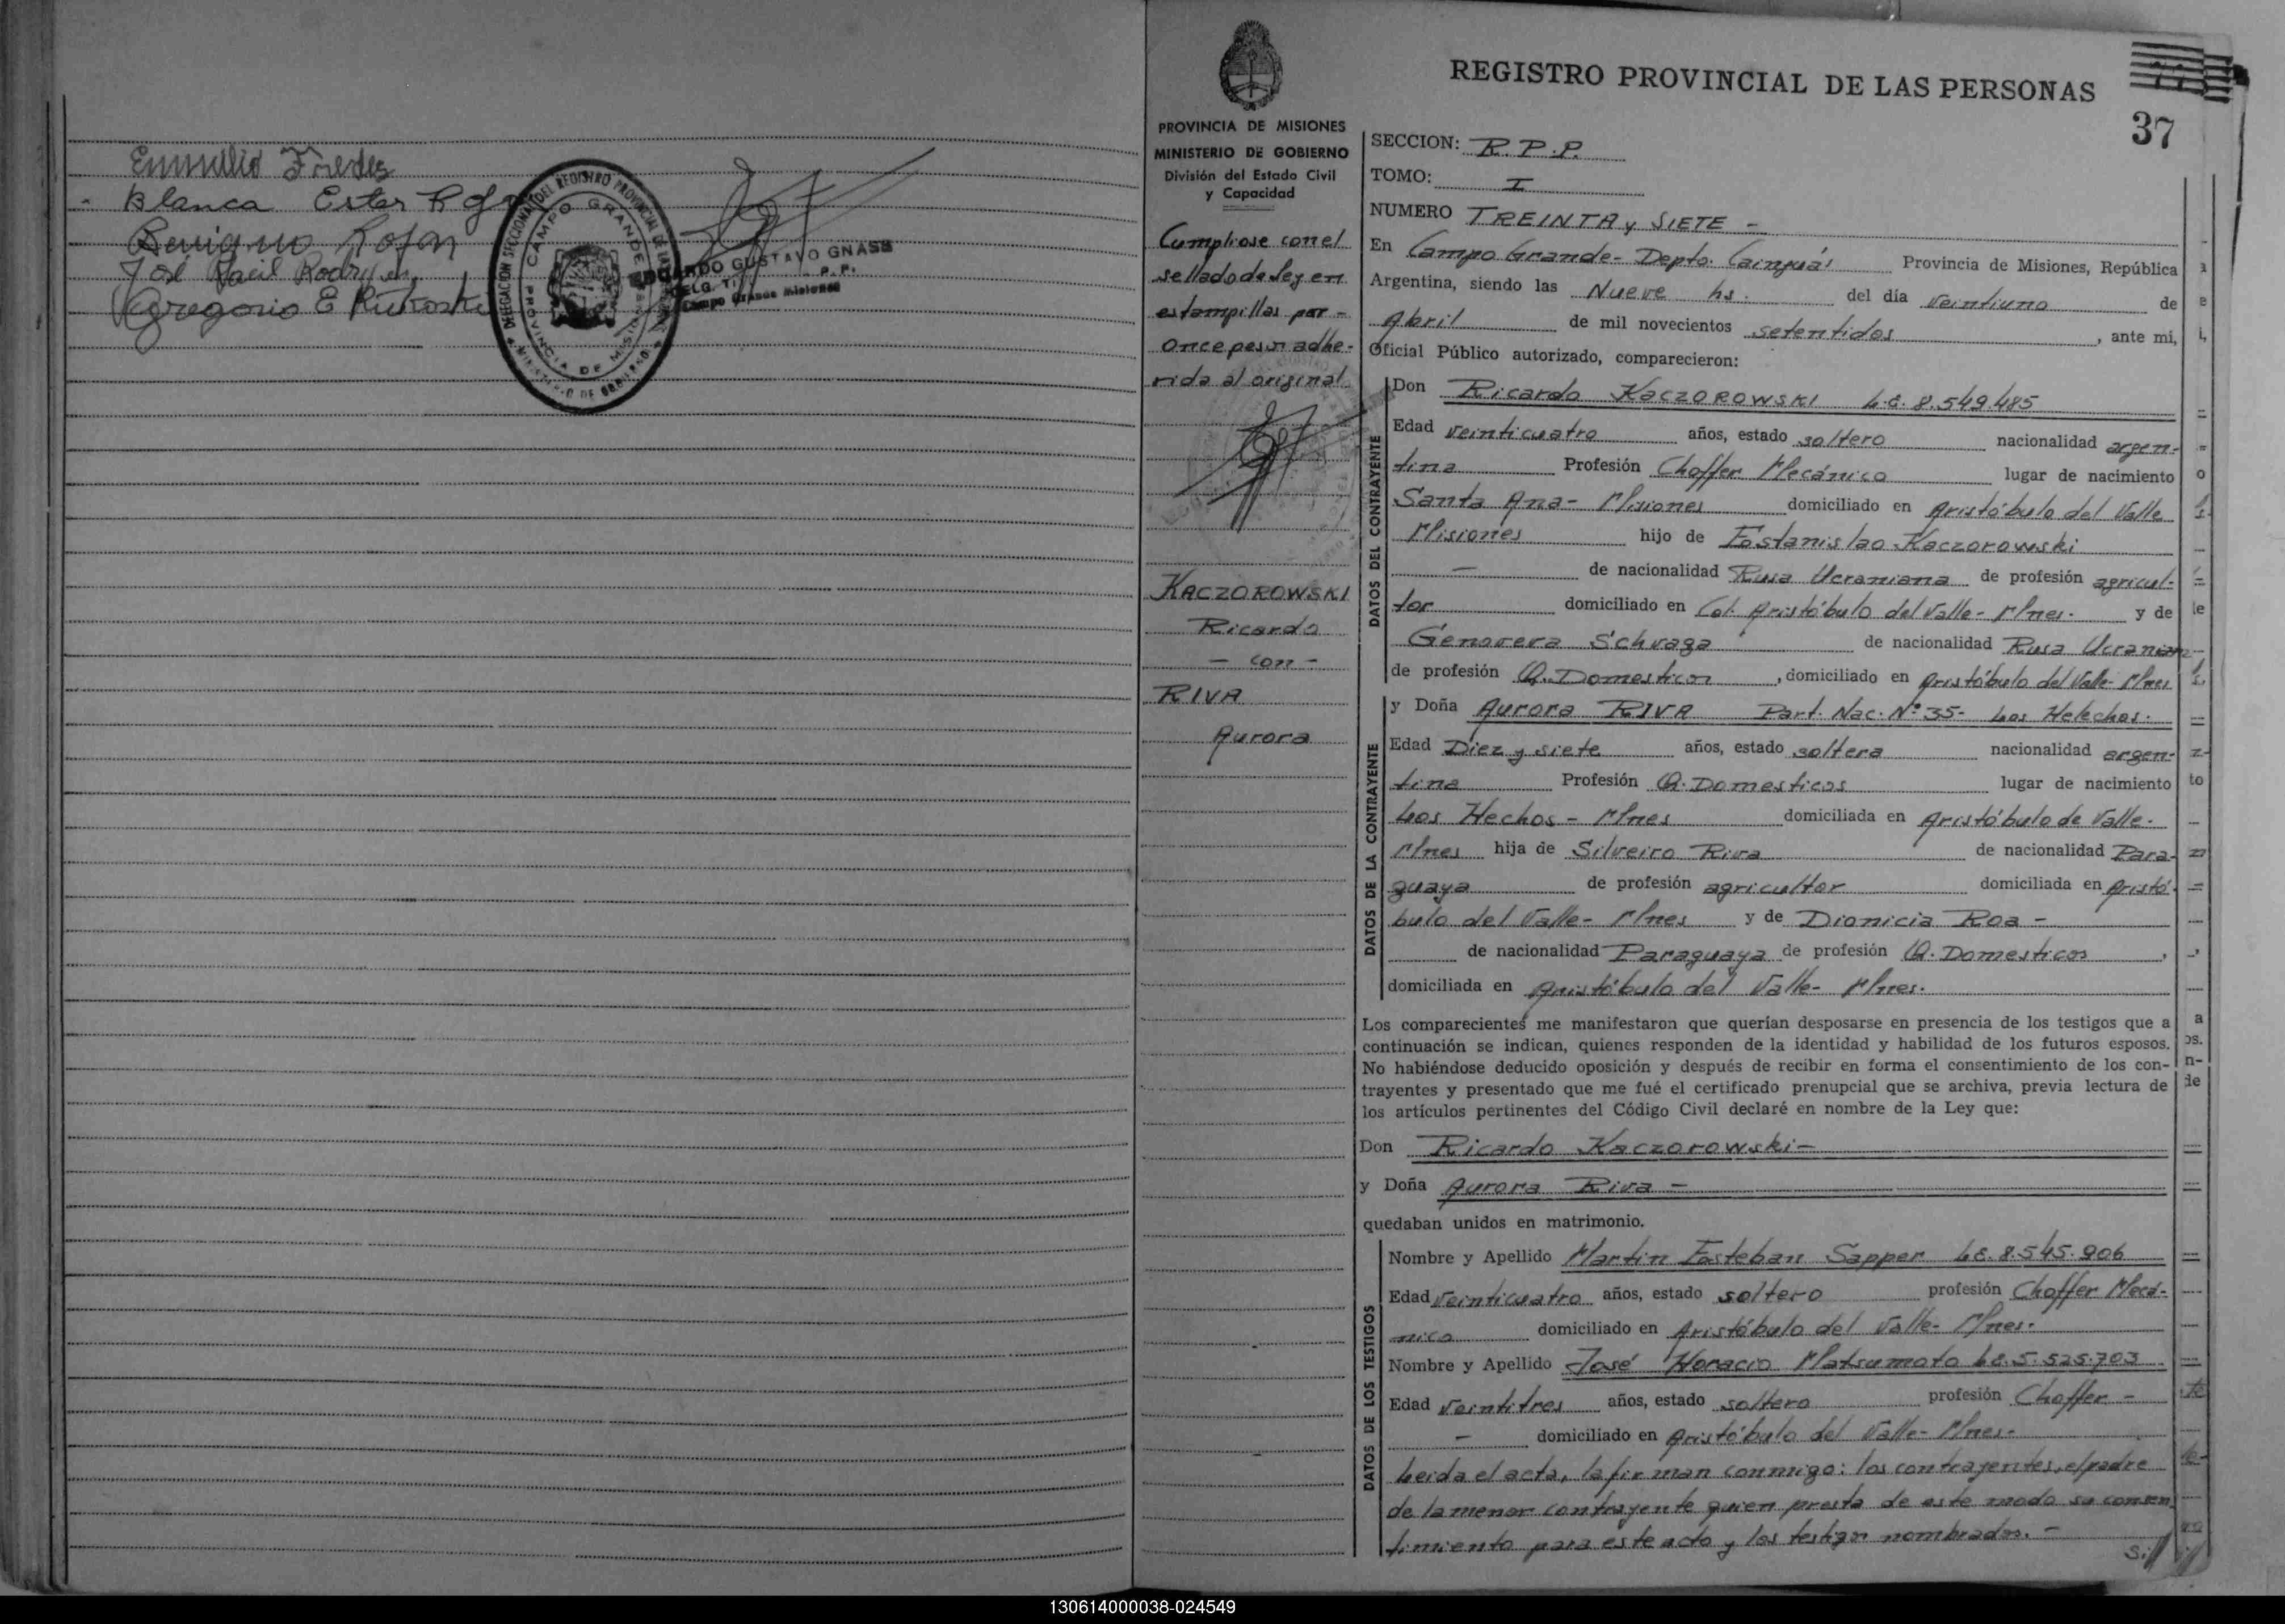 Emmilio Fredes
- Blanca Ester
Benigno
José Raúl Rodriguez
Gregorio E
DELEGACION SECCIONAL DEL REGISTRO PROVINCIAL DE LAS
CAMPO GRANDE
PROVINCIA DE MISIONES
MINISTERIO DE GOBIERNO
EDUARDO GUSTAVO GNASS
DELG. TIT. R. P. P.
Campo Grande Misiones
PROVINCIA DE MISIONES
MINISTERIO DE GOBIERNO
División del Estado Civil
y Capacidad
Cumpliose con el
sellado de ley en
estampillas por -
once pesos adhe-
rida al original
KACZOROWSKI
Ricardo
- con -
RIVA
Aurora
REGISTRO PROVINCIAL DE LAS PERSONAS
37
SECCION: R. P. P.
TOMO: I
NUMERO TREINTA y SIETE -
En Campo Grande - Depto. Cainguás Provincia de Misiones, República
Argentina, siendo las Nueve hs. del día veintiuno de
Abril de mil novecientos setentidos, ante mi,
Oficial Público autorizado, comparecieron:
DATOS DEL CONTRAYENTE
Don Ricardo KACZOROWSKI L.E. 8.549.485
Edad veinticuatro años, estado soltero nacionalidad argen-
tina Profesión Choffer Mecánico lugar de nacimiento
Santa Ana - Misiones domiciliado en Aristóbulo del Valle
Misiones hijo de Estanislao Kaczorowski
- de nacionalidad Rusa Ucraniana de profesión agricul-
tor domiciliado en Col. Aristóbulo del Valle - Mnes. y de
Genovera Schvaga de nacionalidad Rusa Ucraniana
de profesión Q. Domesticos, domiciliado en Aristóbulo del Valle - Mnes
DATOS DE LA CONTRAYENTE
y Doña Aurora RIVA Part. Nac. Nº 35 - Los Helechos.
Edad Diez y siete años, estado soltera nacionalidad argen-
tina Profesión Q. Domesticos lugar de nacimiento
Los Hechos - Mnes domiciliada en Aristóbulo de Valle -
Mnes hija de Silveiro Riva de nacionalidad Para-
guaya de profesión agricultor domiciliada en Aristó-
bulo del Valle - Mnes y de Dionicia Roa -
de nacionalidad Paraguaya de profesión Q. Domesticos,
domiciliada en Aristóbulo del Valle - Mnes.
Los comparecientes me manifestaron que querían desposarse en presencia de los testigos que a
continuación se indican, quienes responden de la identidad y habilidad de los futuros esposos.
No habiéndose deducido oposición y después de recibir en forma el consentimiento de los con-
trayentes y presentado que me fué el certificado prenupcial que se archiva, previa lectura de
los artículos pertinentes del Código Civil declaré en nombre de la Ley que:
Don Ricardo Kaczorowski -
y Doña Aurora Riva -
quedaban unidos en matrimonio.
DATOS DE LOS TESTIGOS
Nombre y Apellido Martin Esteban Sapper L.E. 8.545.906
Edad veinticuatro años, estado soltero profesión Choffer Mecá-
nico domiciliado en Aristóbulo del Valle - Mnes.
Nombre y Apellido José Horacio Matsumoto L.E. 5.525.703
Edad veintitres años, estado soltero profesión Choffer -
- domiciliado en Aristóbulo del Valle - Mnes.
Leida el acta, la firman conmigo: los contrayentes, el padre
de la menor contrayente quien presta de este modo su consen
timiento para este acto y los testigos nombrados. -
130614000038-024549